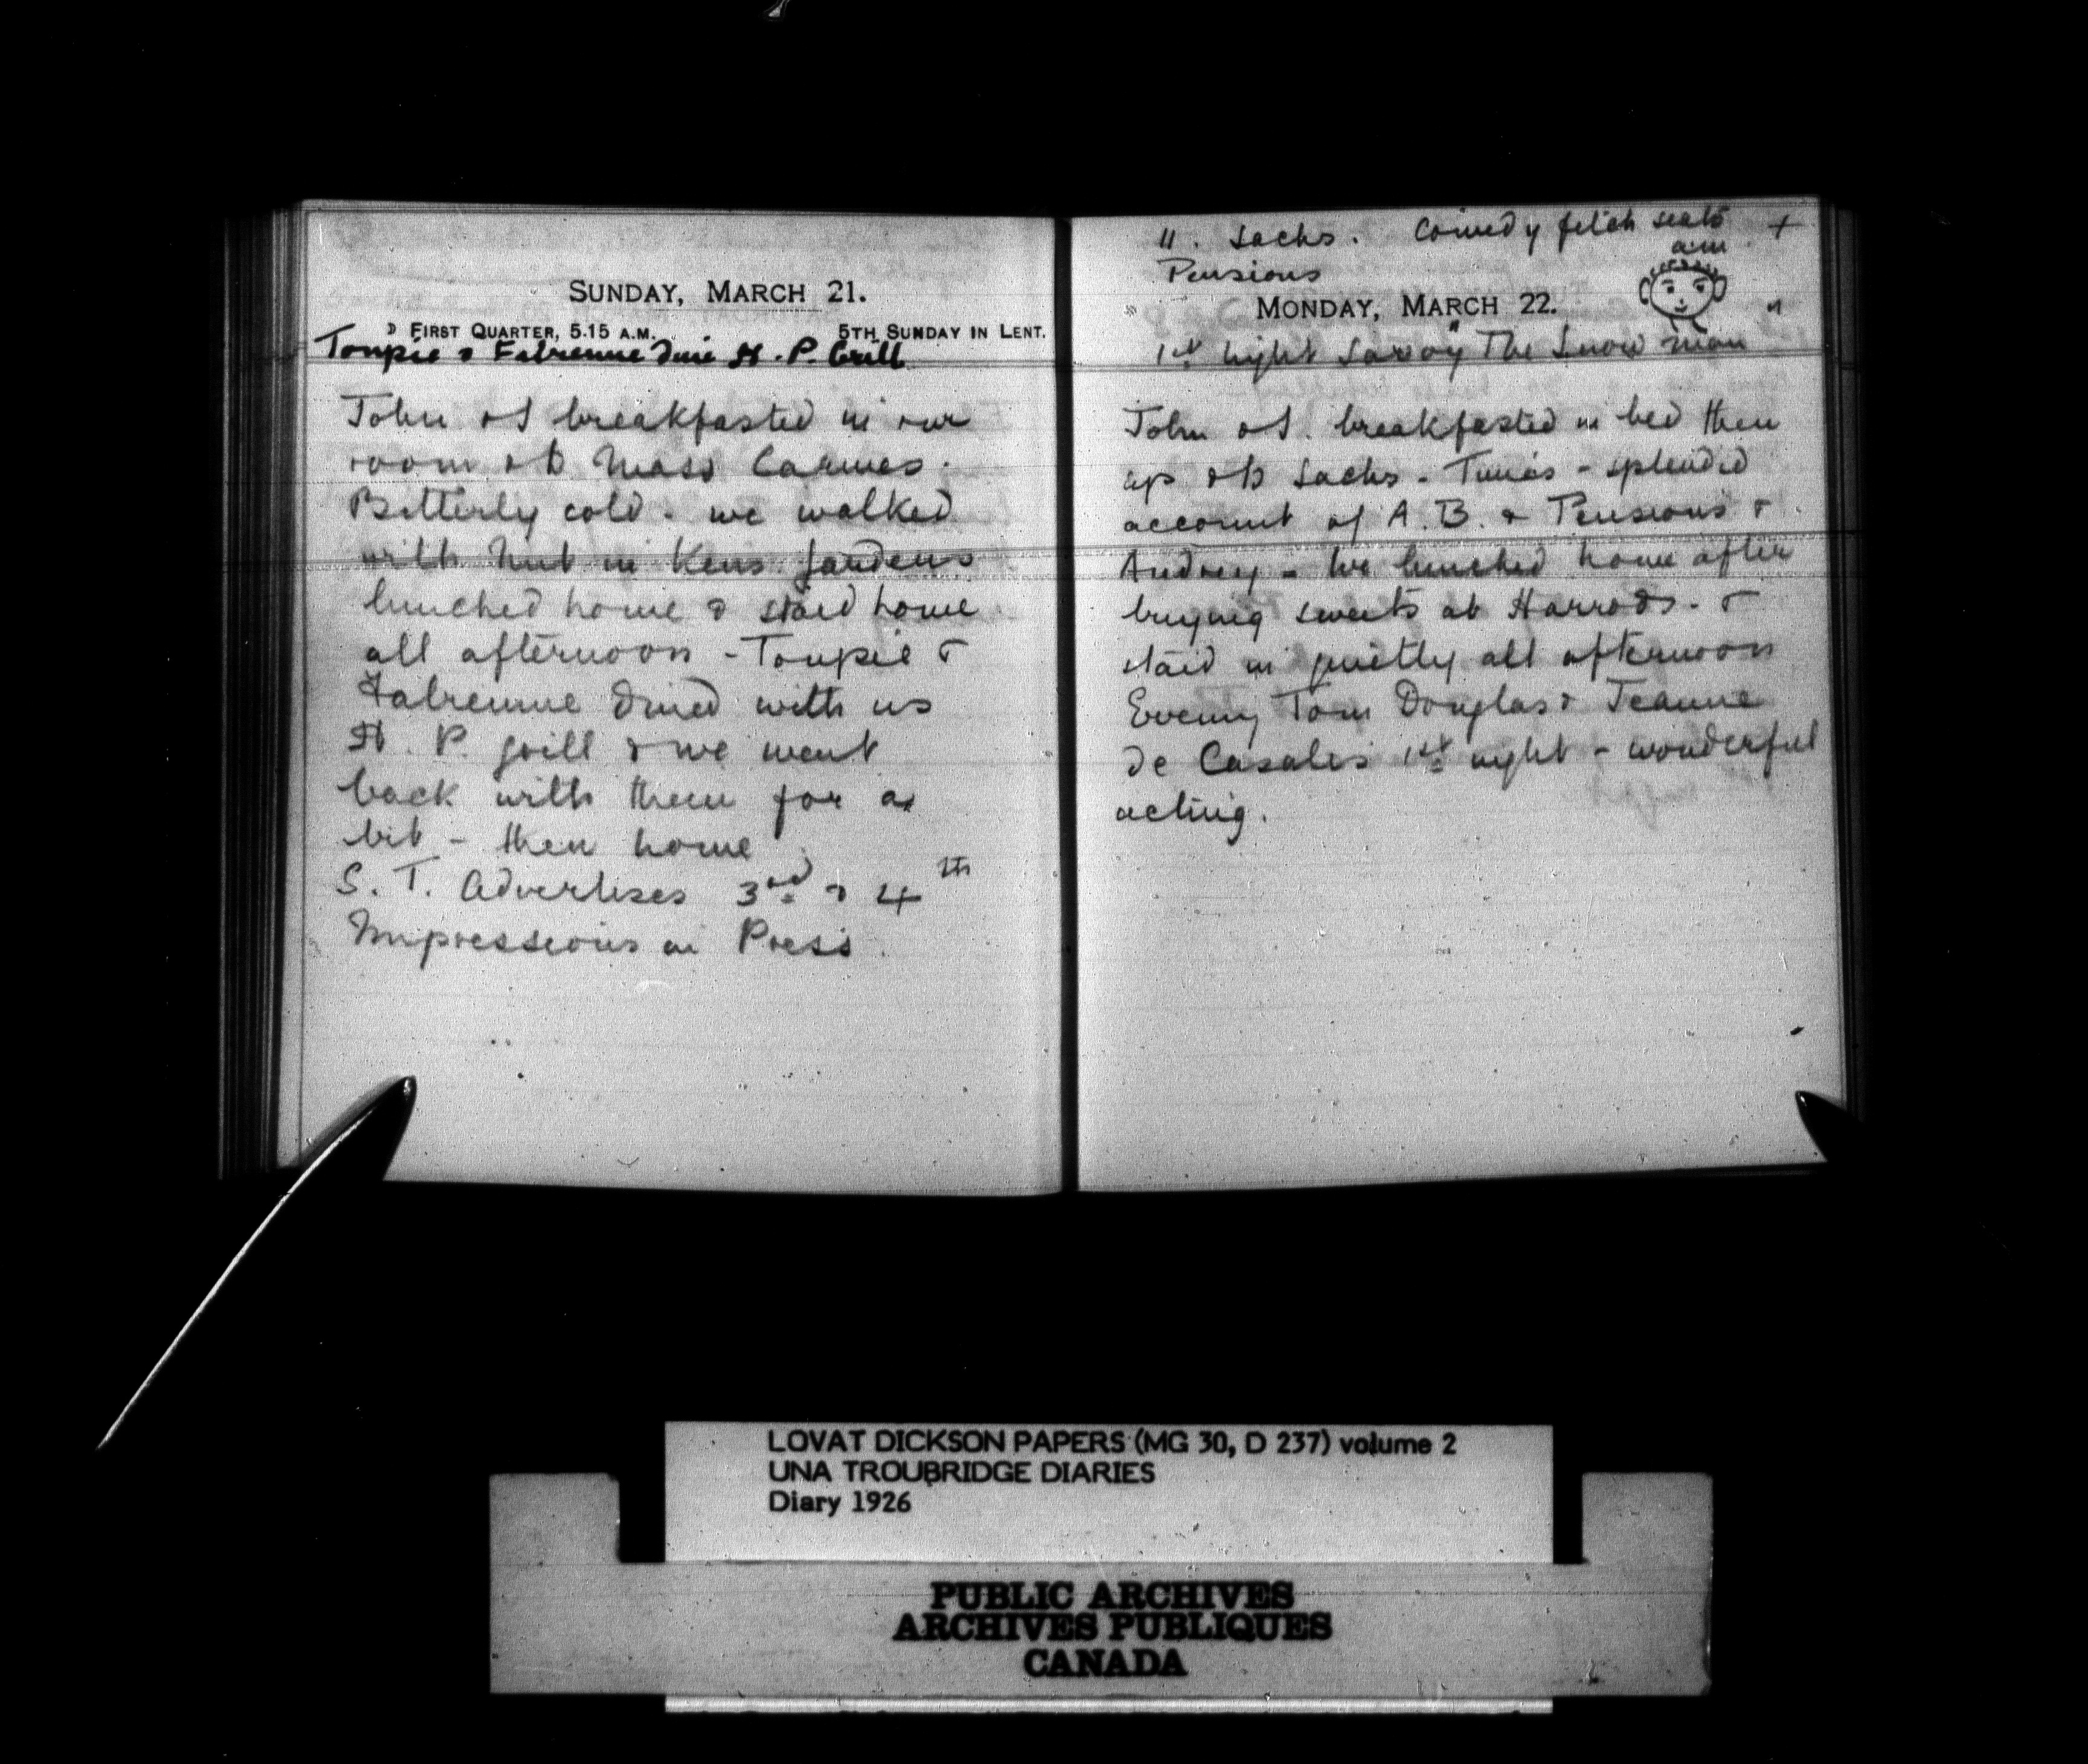 SUNDAY, MARCH 21.
☽ FIRST QUARTER, 5.15 A.M. 5TH SUNDAY IN LENT.
Toupie & Fabienne dine H. P. Grill
John & I breakfasted in our
room & to Mass Carmes.
Bitterly cold - we walked
with Nut in Kens. Gardens
lunched home & staid home
all afternoon - Toupie &
Fabienne dined with us
H. P. grill & we went
back with them for a
bit - then home
S. T. Advertises 3rd & 4th
Impressions in Press.
11. Sachs. Comedy fetch seats +
am
Pensions
MONDAY, MARCH 22.
1st night Savoy "The Snow man"
John & I. breakfasted in bed then
up & to Sachs. Times - splendid
account of A. B. & Pensions &
Audrey - We lunched home after
buying sweets at Harrods. &
staid in quietly all afternoon
Evening Tom Douglas & Jeanne
de Casalis 1st night - wonderful
acting.
LOVAT DICKSON PAPERS (MG 30, D 237) volume 2
UNA TROUBRIDGE DIARIES
Diary 1926
PUBLIC ARCHIVES
ARCHIVES PUBLIQUES
CANADA